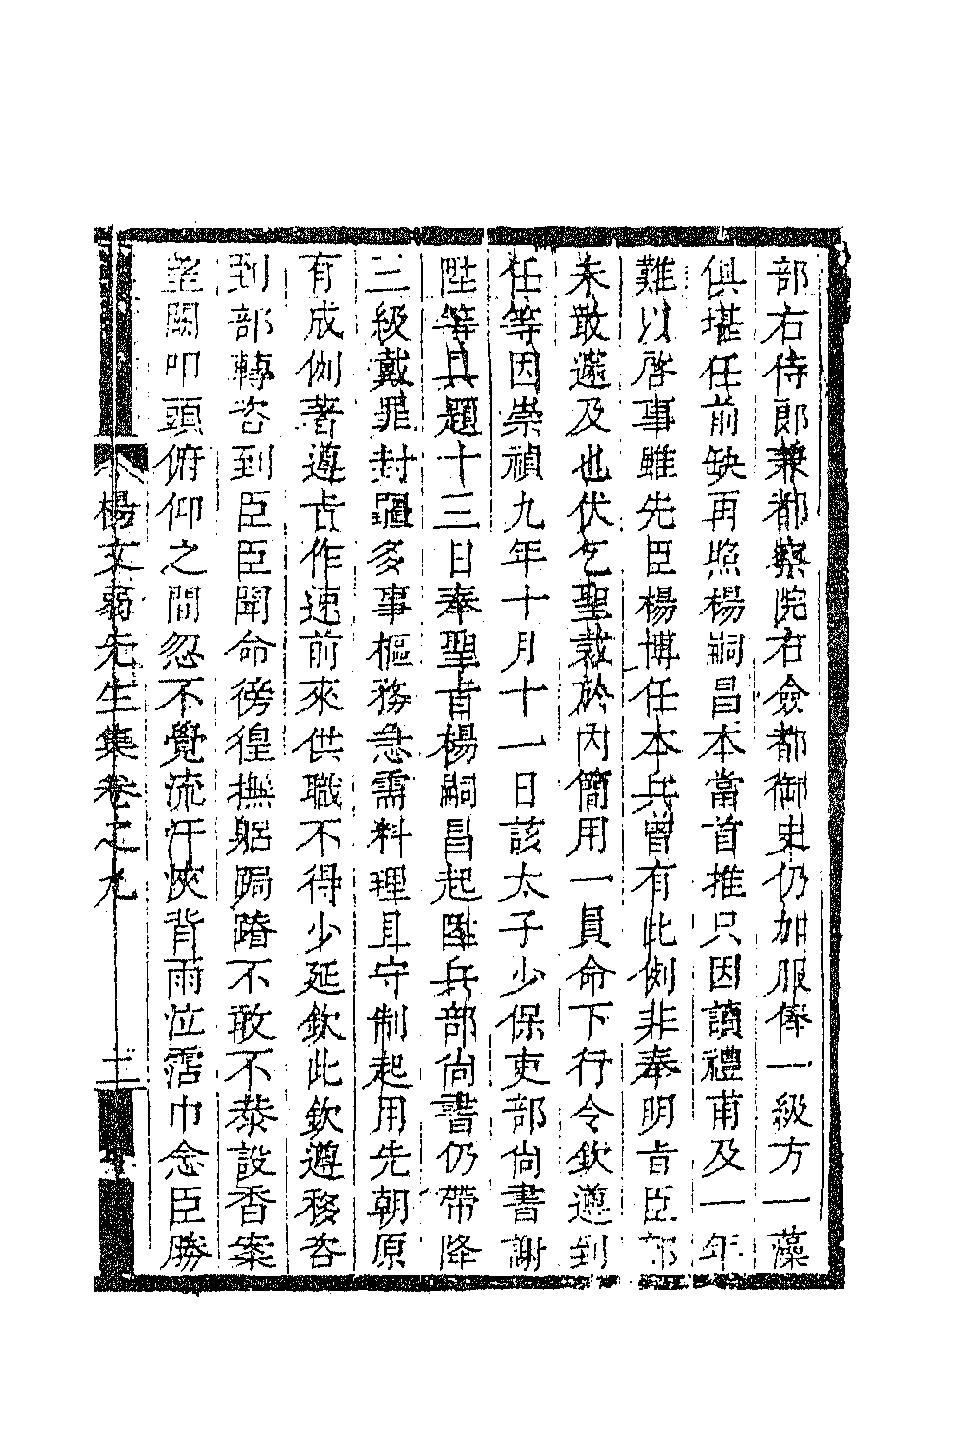 部右侍郎兼都察院右僉都御史仍加服俸一級方一藻
俱堪任前缺再照楊嗣昌本當首推只因讀禮甫及一年
難以啓事雖先臣楊博任本兵曾有此例非奉明旨臣部
未敢遽及也伏乞聖裁於內簡用一員命下行令欽遵到
任等因崇禎九年十月十一日該太子少保吏部尚書謝
陞等具題十三日奉聖旨楊嗣昌起陞兵部尚書仍帶降
三級戴罪封疆多事樞務急需料理且守制起用先朝原
有成例著遵旨作速前來供職不得少延欽此欽遵移咨
到部轉咨到臣臣聞命徬徨撫躬跼蹐不敢不恭設香案
望闕叩頭俯仰之間忽不覺流汗浹背雨泣霑巾念臣勝
楊文弱先生集卷之九
三